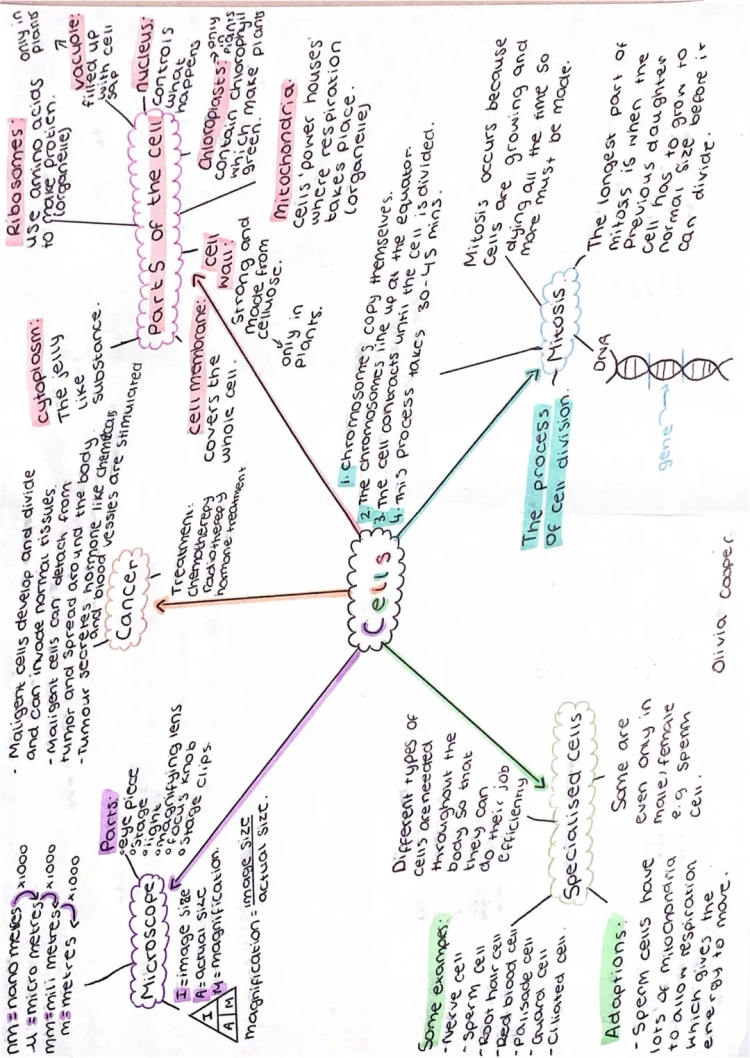 nm = nano metres
x1000
μ = micro metres
x1000
mm = mili metres
x1000
m = metres
Microscope
Parts:
°eye piece
°stage
°light
°magnifying lens
°focus knob
°stage clips.
I = image size
A = actual size
M = magnification.
I
A M
magnification = image size
actual size.
- Maligent cells develop and divide
and can invade normal tissues.
- Maligent cells can detach from
tumor and spread around the body.
- Tumour secretes hormone like chemicals
and blood vessles are stimulated
Cancer
Treatment:
chemotherapy
radiotherapy
hormone treatment
Parts of the cell
cytoplasm:
The jelly
like
substance.
Ribosomes:
use amino acids
to make protien.
(organelle)
vacuole:
only in
plants
filled up
with cell
sap
nucleus:
controls
what
happens
Chloroplasts→only
in
plants
contain chlorophyll
which make plants
green.
Mitochondria:
cells 'power houses'
where respiration
takes place.
(organelle)
cell
wall:
strong and
made from
cellulose.
only in
plants.
cell membrane:
covers the
whole cell.
Cells
1. Chromosomes copy themselves.
2. The chromosomes line up at the equator.
3. The cell contracts until the cell is divided.
4. This process takes 30-45 mins.
Mitosis
The process
of cell division.
Mitosis occurs because
cells are growing and
dying all the time so
more must be made.
The longest part of
mitosis is when the
previous daughter
cell has to grow to
normal size before it
can divide.
DNA
gene
Specialised cells
Different types of
cells are needed
throughout the
body so that
they can
do their job
efficienly
Some examples:
- Nerve cell
- Sperm cell
- Root hair cell
- Red blood cell
- Palisade cell
- Guard cell
- Ciliated cell.
Adaptions:
- Sperm cells have
lots of mitochondria
to allow respiration
which gives the
energy to move.
Some are
even only in
male/female
e.g sperm
cell.
Olivia Cooper